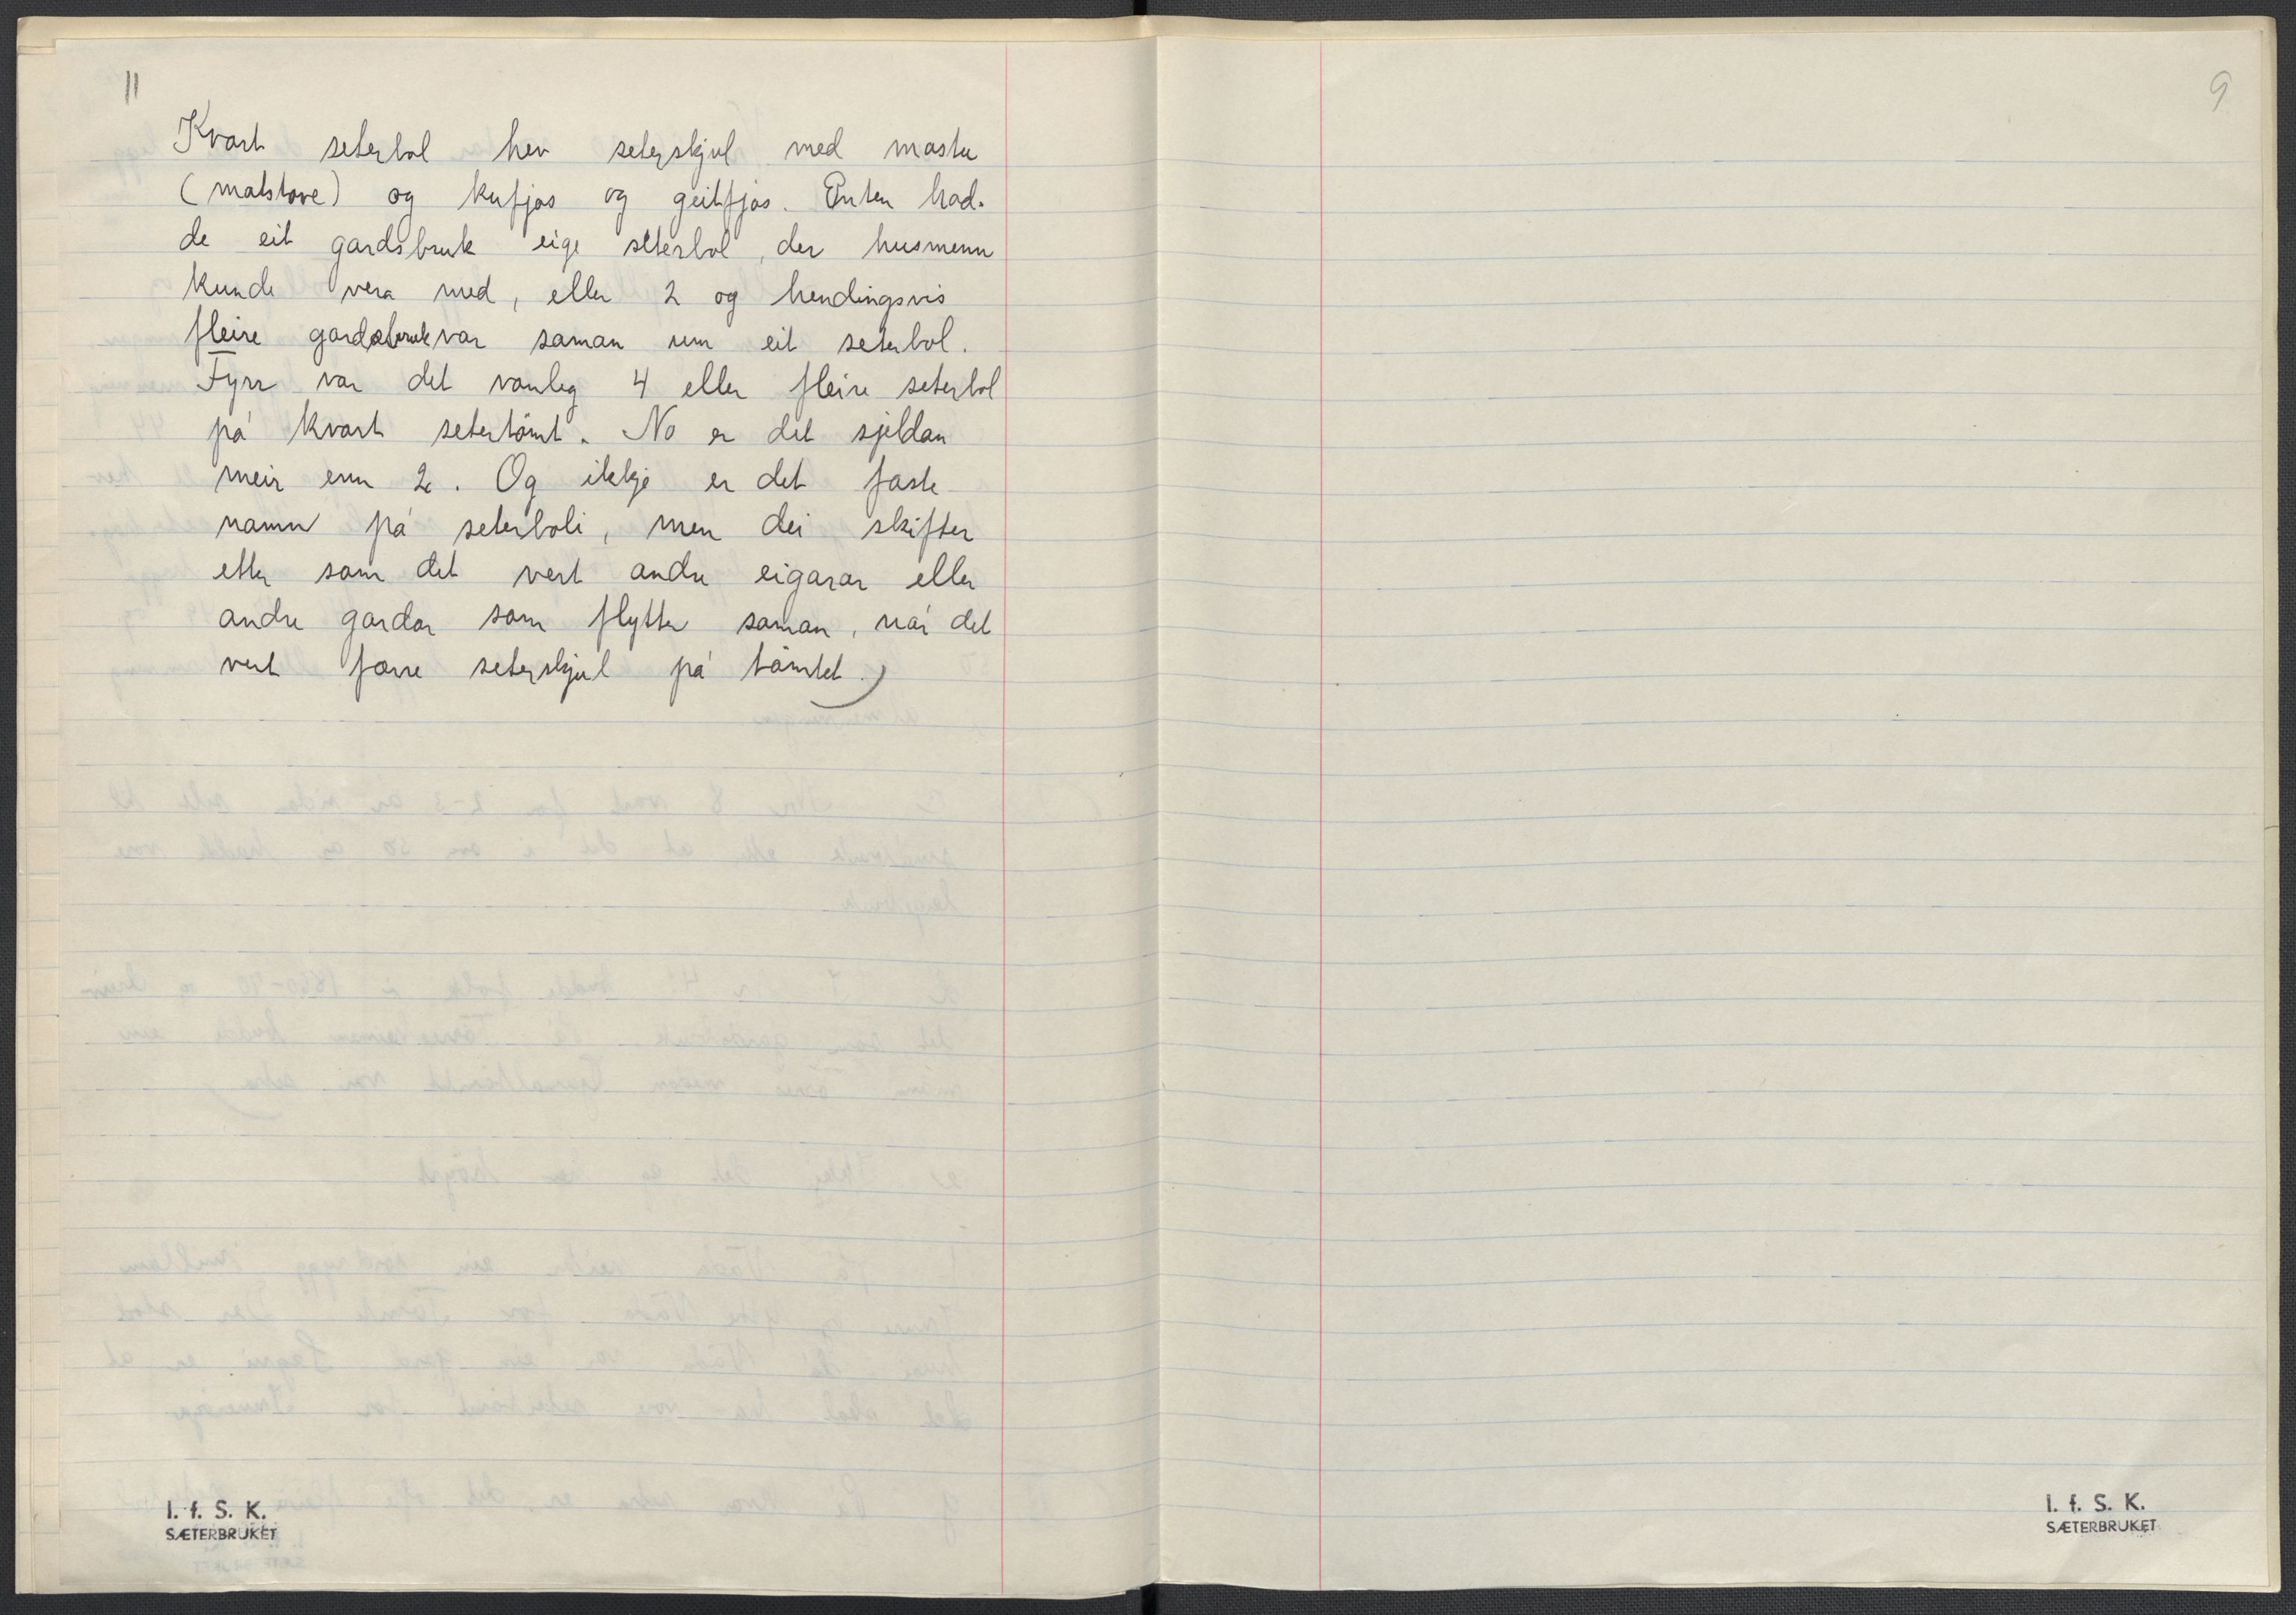 11
Kvart seterbol hev seterskjul med mastu
(matstove) og kufjos og geitfjos. Enten had-
de eit gardsbruk eige seterbol, der husmenn
kunde vera med, eller 2 og hendingsvis
fleire gardsbruk var saman um eit seterbol.
Fyrr var det vanleg 4 eller fleire seterbol
på kvart setertömt. No er det sjeldan
meir enn 2. Og ikkje er det faste
namn på seterboli, men dei skifter
etter som det vert andre eigarar eller
andre gardar som flytter saman, når det
vert færre seterskjul på tömtet.)
I. f. S. K.
SÆTERBRUKET
9
I. f. S. K.
SÆTERBRUKET